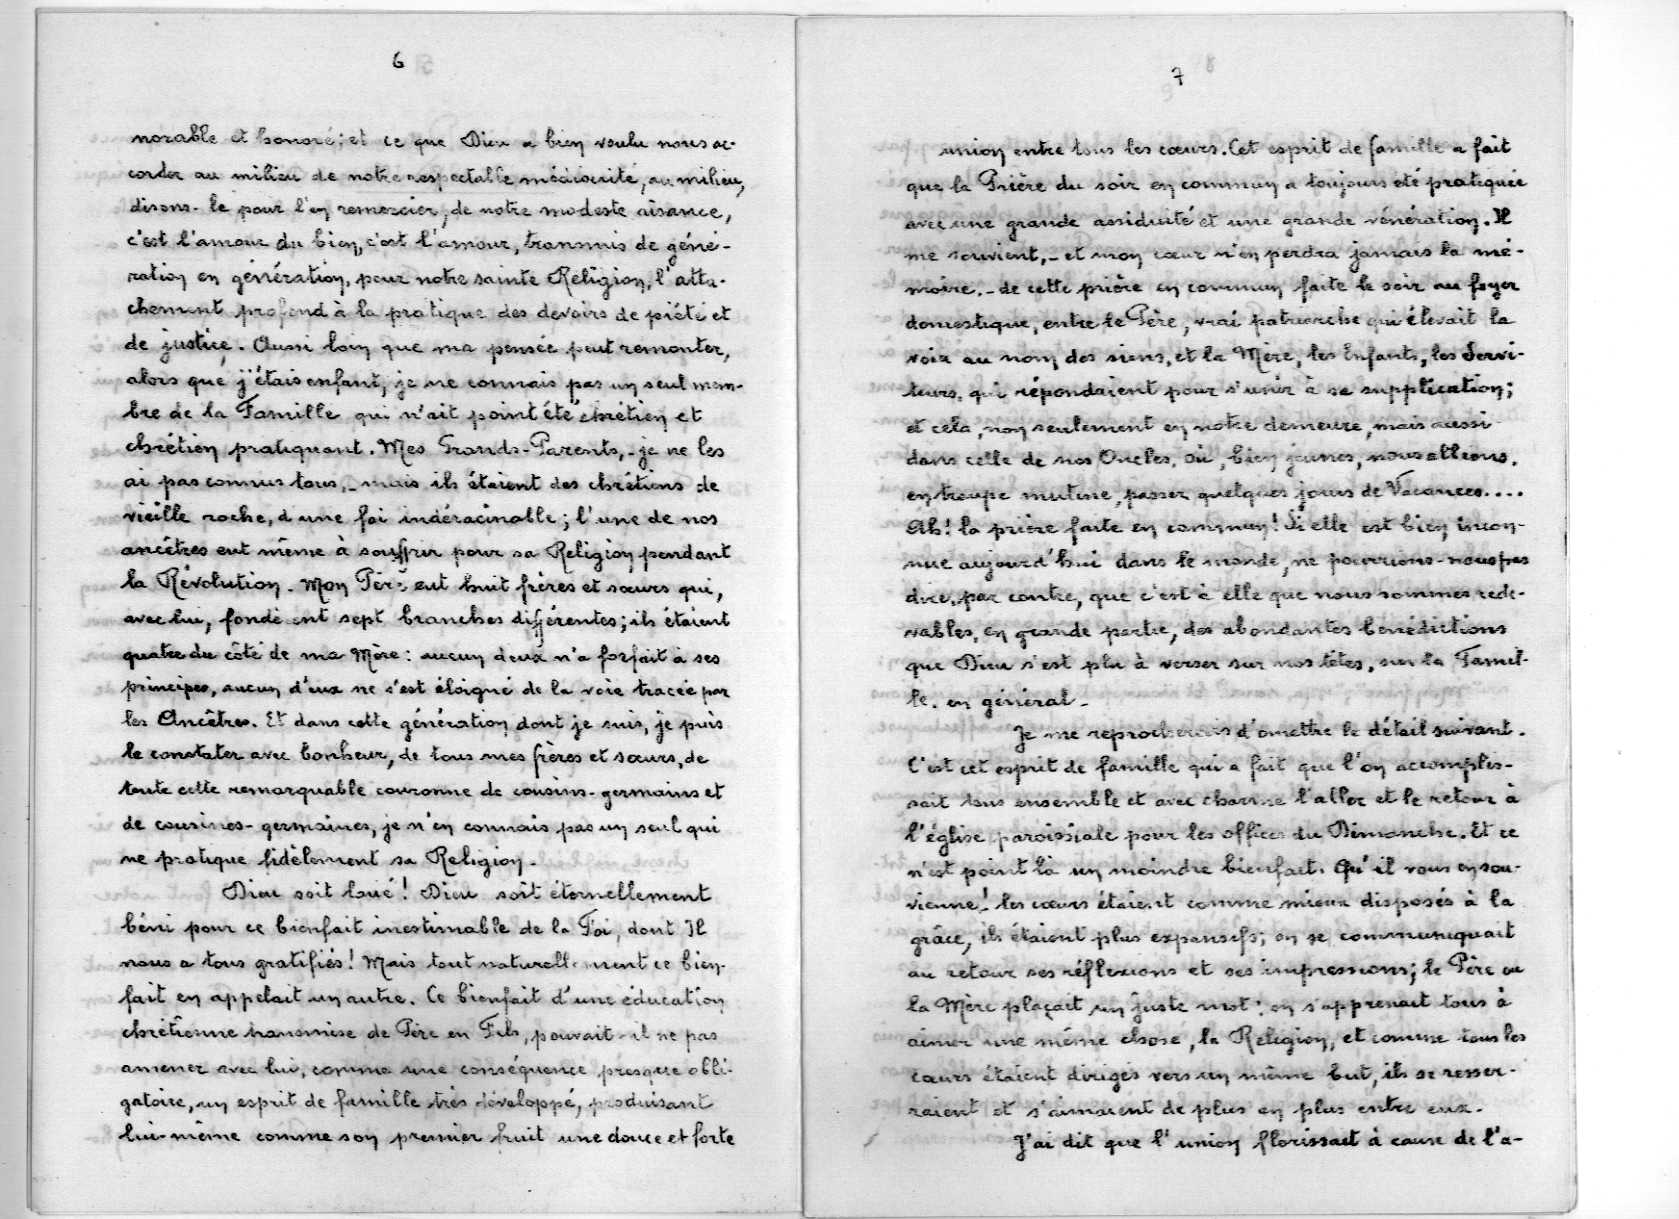 6
norable et honoré; et ce que Dieu a bien voulu nous ac-
corder au milieu de notre respectable médiocrité, au milieu,
disons-le pour l'en remercier, de notre modeste aisance,
c'est l'amour du bien, c'est l'amour, transmis de géné-
ration en génération, pour notre sainte Religion, l'atta-
chement profond à la pratique des devoirs de piété et
de justice. Aussi loin que ma pensée peut remonter,
alors que j'étais enfant, je ne connais pas un seul mem-
bre de la Famille qui n'ait point été chrétien et
chrétien pratiquant. Mes Grands-Parents, - je ne les
ai pas connus tous, - mais ils étaient des chrétiens de
vieille roche, d'une foi indéracinable; l'une de nos
ancêtres eut même à souffrir pour sa Religion pendant
la Révolution. Mon Père eut huit frères et sœurs qui,
avec lui, fondèrent sept branches différentes; ils étaient
quatre du côté de ma Mère: aucun d'eux n'a forfait à ses
principes, aucun d'eux ne s'est éloigné de la voie tracée par
les Ancêtres. Et dans cette génération dont je suis, je puis
le constater avec bonheur, de tous mes frères et sœurs, de
toute cette remarquable couronne de cousins-germains et
de cousines-germaines, je n'en connais pas un seul qui
ne pratique fidèlement sa Religion.
Dieu soit loué! Dieu soit éternellement
béni pour ce bienfait inestimable de la Foi, dont Il
nous a tous gratifiés! Mais tout naturellement ce bien-
fait en appelait un autre. Ce bienfait d'une éducation
chrétienne transmise de Père en Fils, pouvait-il ne pas
amener avec lui, comme une conséquence presque obli-
gatoire, un esprit de famille très développé, produisant
lui-même comme son premier fruit une douce et forte
7
union entre tous les cœurs. Cet esprit de famille a fait
que la Prière du soir en commun a toujours été pratiquée
avec une grande assiduité et une grande vénération. Il
me souvient, - et mon cœur n'en perdra jamais la mé-
moire. - de cette prière en commun faite le soir au foyer
domestique, entre le Père, vrai patriarche qui élevait la
voix au nom des siens, et la Mère, les Enfants, les Servi-
teurs, qui répondaient pour s'unir à sa supplication;
et cela, non seulement en notre demeure, mais aussi
dans celle de nos Oncles, où, bien jeunes, nous allions,
en troupe mutine, passer quelques jours de Vacances....
Ah! la prière faite en commun! Si elle est bien incon-
nue aujourd'hui dans le monde, ne pourrions-nous pas
dire, par contre, que c'est à elle que nous sommes rede-
vables, en grande partie, des abondantes bénédictions
que Dieu s'est plu à verser sur nos têtes, sur la Famil-
le. en général.
Je me reprocherais d'omettre le détail suivant.
C'est cet esprit de famille qui a fait que l'on accomplis-
sait tous ensemble et avec charme l'aller et le retour à
l'église paroissiale pour les offices du Dimanche. Et ce
n'est point là un moindre bienfait. Qu'il vous en sou-
vienne! les cœurs étaient comme mieux disposés à la
grâce, ils étaient plus expansifs; on se communiquait
au retour ses réflexions et ses impressions; le Père ou
la Mère plaçait un juste mot; on s'apprenait tous à
aimer une même chose, la Religion, et comme tous les
cœurs étaient dirigés vers un même but, ils se resser-
raient et s'aimaient de plus en plus entre eux.
J'ai dit que l'union florissait à cause de l'a-